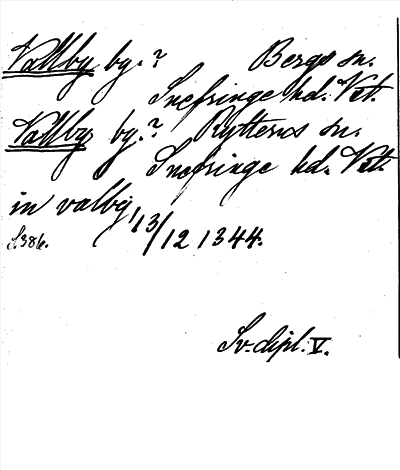 Vallby by.? Bergs sn.
Snefringe hd. Vst.
Vallby by.? Rytterns sn.
Snefringe hd. Vst.
in valby, 13/12 1344.
S.386.
Sv. dipl. V.